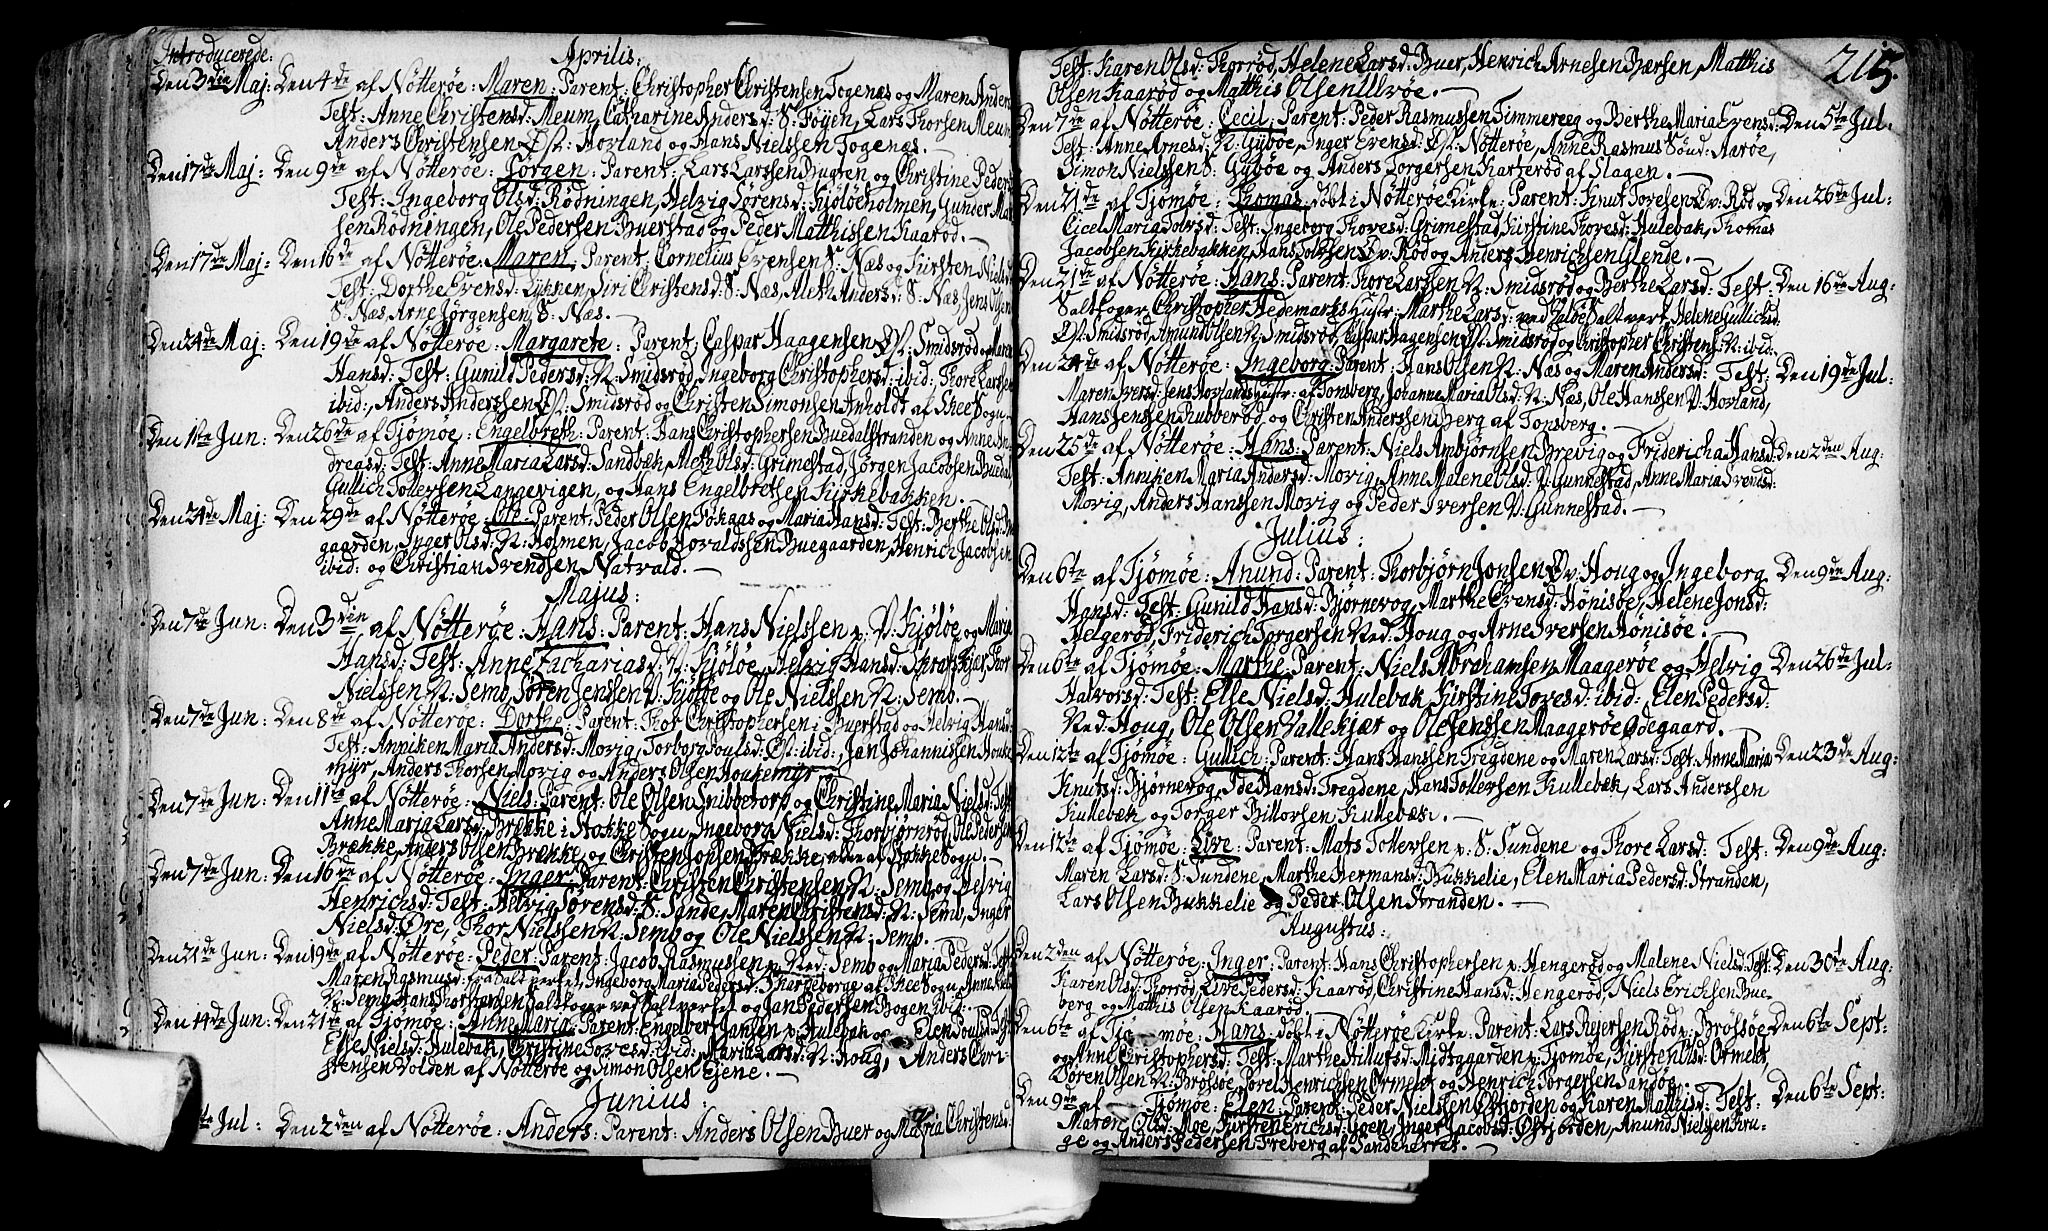 Introducerede:
Aprilis:
Den 3die Maj: Den 4de af Nötterøe: Maren: Parent: Christopher Christensen Togenæs og Maren Anders
Test: Anne Christensd: Meum, Catharine Andersd: S: Föyen, Lars Thorsen Meum
Anders Christensen Ø: Hovland og Hans Nielssen Togenæs.
Den 17de Maj: Den 9de af Nötterøe: Jörgen: Parent: Lars Larssen Bugten og Christine Peders
Test: Ingeborg Olsd: Rödningen, Helvig Sörensd: Kjölöeholmen, Gunder
sen Rödningen, Ole Pedersen Buerstad og Peder Matthissen Kaaröd.
Den 17de Maj: Den 16de af Nötterøe: Maren: Parent: Cornelius Evensen S: Næs og Kirsten Nielsd
Test: Dorthe Evensd: Siri Christensd: S: Næs, Aleth Andersd: S: Næs, Jens Olsen
S: Næs, Arne Jörgensen S: Næs.
Den 24de Maj: Den 19de af Nötterøe: Margarete: Parent: Caspar Haagensen Ø: Smidsröd og Maren
Hansd: Test: Gunild Pedersd: N: Smidsröd, Ingeborg Christophersd: ibid: Thore Larssen
ibid:, Anders Anderssen Ø: Smidsröd og Christen Simonsen Anholdt af Skee Sogn.
Den 1ste Jun: Den 26de af Tjömöe: Engelbreth: Parent: Hans Christophersen Buedalstranden og Anne An
dreasd: Test: Anne Maria Larsd: Sandbæk, Mette Olsd: Grimestad, Jörgen Jacobsen Buedal
Gullich Tollefsen Langevigen, og Hans Engelbretsen Kirkebakken.
Den 24de Maj: Den 29de af Nötterøe: Ole: Parent: Peder Olsen og Maria Hansd: Test: Berthe Olsd: Bue
gaarden, Inger Olsd: N: Holmen, Jacob Buegaarden, Henrich Jacobsen
ibid: og Christian Svendsen Natvald.
Majus:
Den 7de Jun: Den 3die af Nötterøe: Hans: Parent: Hans Nielssen p: V: Kjölöe og Maria
Hansd: Test: Anne Zachariasd: N: Kjölöe, Helvig Hansd: Thor
Nielssen N: Semb, Sören Jenssen V: Kjölöe og Ole Nielssen N: Semb.
Den 7de Jun: Den 8de af Nötterøe: Dorthe: Parent: Thor Christophersen i Buerstad og Helvig Hansd:
Test: Anniken Maria Andersd: Movig, Torborg Poulsd: ibid: Jan Johannissen Houke
myr, Anders Thorsen Movig og Anders Olsen Houkemyr.
Den 7de Jun: Den 11te af Nötterøe: Niels: Parent: Ole Olsen Snibbetorp og Christine Maria Nielsd: Test:
Anne Maria Larsd: Brække i Stokke Sogn, Ingeborg Nielsd: Thorbjørnröd, Ole Pedersen
Brække, Anders Olsen Brække, og Christen Brække, alle af Stokke Sogn.
Den 7de Jun: Den 16de af Nötterøe: Inger: Parent: Christen Christensen N: Semb og Helvig
Henrichsd: Test: Helvig Sörensd: S: Sande, Maren Christensd: N: Semb, Inger
Nielsd: Öre, Thor Nielssen N: Semb og Ole Nielssen N: Semb.
Den 21de Jun: Den 19de af Nötterøe: Peder: Parent: Jacob Rasmussen p: Ned: Semb og Maria Pedersd: Test:
Maren Rasmusd: fra Saltverket, Ingeborg Maria Pedersd: af Skee Sogn, Anne
N: Semb, Hans Saltkoger ved Saltverket og Jan Pedersen Bogen ibid:
Den 14de Jun: Den 21de af Tjömöe: Anne Maria: Parent: Engelbert Jansen p: Hulebak og Elen Poulsd: Test
Else Nielsd: Hulebak, Christine Tovesd: ibid:, Maria Larsd: N: Houg, Anders Chri-
stensen Volden af Nötterøe og Simon Olsen Ejene.
Junius:
Jul: Den 2den af Nötterøe: Anders: Parent: Anders Olsen Buer og Maria Christensd:
215.
Test: Karen Olsd: Thoröd, Helene Larsd: Buer, Henrich Arnesen Bærsen, Matthis
Olsen Kaaröd og Matthis Olsen Ulvøe.
Den 7de af Nötterøe: Cecil: Parent: Peder Rasmussen Timmereeg og Berthe Maria Evensd: Den 5te Jul:
Test: Anne Arnesd: N: Gyböe, Inger Evensd: Nötterøe, Anne Rasmus Sönd: Aaröe,
Simon Nielssen S: Gyböe og Anders Torgersen Karteröd af Slagen.
Den 21de af Tjömöe: Thomas: döbt i Nötterøe Kirke: Parent: Knut Tovesen Øv: Röd og Den 26de Jul:
Cicel Maria Tolvsd: Test: Ingeborg Thovesd: Grimestad, Kirstine Thovesd: Hulebak, Thomas
Jacobsen Kirkebakken, Hans Øv: Röd og Anders Henrichsen Glende.
Den 21de af Nötterøe: Hans: Parent: Thore Larssen N: Smidsröd og Berthe Larsd: Test: Den 16de Aug:
Saltkoger Christopher Hedemarks Hustr: Marthe Larsd: ved Valöe Saltverk, Helene Gullichsd:
Ø: Smidsröd, Amund Olsen N: Smidsröd, Caspar Haagensen Ø: Smidsröd og Christopher Christens: N: ibid:
Den 24de af Nötterøe: Ingeborg: Parent: Hans Olsen N: Næs og Maren Andersd: Test: Den 19de Jul:
Maren Iversd: Jens Hovlands Hustr: af Tonsberg, Johanne Maria Olsd: N: Næs, Ole Hanssen V: Hovland,
Hans Jenssen Bubberöd, og Christen Anderssen Berg af Tonsberg.
Den 25de af Nötterøe: Hans: Parent: Niels Ambjörnsen Brevig og Fridericha Hansd: Den 2den Aug:
Test: Anniken Maria Andersd: Movig, Anne Malene Olsd: V: Gunnestad, Anne Maria Svendsd:
Movig, Anders Hanssen Movig og Peder Iversen V: Gunnestad.
Julius:
Den 6te af Tjömöe: Anund: Parent: Thorbjörn Jonsen Øv: Houg og Ingeborg Den 9de Aug:
Hansd: Test: Gunild Hansd: Björnevog, Marthe Evensd: Hönisöe, Helene Jonsd:
Helgeröd, Friderich Torgersen Ned: Houg og Arne Iversen Hönisöe.
Den 6te af Tjömöe: Marthe: Parent: Niels Abrahamsen Maageröe og Helvig Den 26de Jul:
Halvorsd: Test: Else Nielsd: Hulebak, Kirstine Tovesd: ibid: Elen Pedersd:
Ned: Houg, Ole Olsen Vallekjær og Ole Jenssen Maageröe Ödegaard.
Den 12te af Tjömöe: Gullich: Parent: Hans Hanssen Tregdene og Maren Larsd: Test: Anne Maria Den 23de Aug:
Knutsd: Björnevog, Ide Hansd: Tregdene, Hans Tollefsen Kullebæk, Lars Anderssen
Kullebæk og Torger Kullebæk.
Den 12te af Tjömöe: Live: Parent: Mats Tollefsen p: S: Sundene og Thore Larsd: Test: Den 9de Aug:
Maren Larsd: S: Sundene, Marthe Hermansd: Bukkelie, Elen Maria Pedersd: Stranden,
Lars Olsen Bukkelie og Peder Olsen Stranden.
Augustus:
Den 2den af Nötterøe: Inger: Parent: Hans Christophersen p: Hengeröd og Malene Nielsd: Test: Den 30te Aug:
Karen Olsd: Thoröd, Live Pedersd: Kaaröd, Christine Hansd: Hengeröd, Niels Erichsen Bue-
berg og Matthis Olsen Kaaröd.
Den 6te af Tjömöe: Hans: döbt i Nötterøe Kirke: Parent: Lars Rejersen Röd p: Brösöe Den 6te Sept:
og Anne Christophersd: Test: Marthe Midtgaarden p: Tjömöe, Kirsten Olsd: Ormelt,
Sören Olsen N: Brösöe, Povel Henrichsen Ormelet og Henrich Torgersen Sandöe.
Den 9de af Tjömöe: Elen: Parent: Peder Nielssen Østjorden og Karen Matthisd: Test: Den 6te Sept:
Maren Olsd: Moe, Kirsten Erichsd: Goen, Inger Jacobsd: Østjorden, Anund Nielssen Kru-
ge og Anders Pedersen Freberg af Sandeherret.